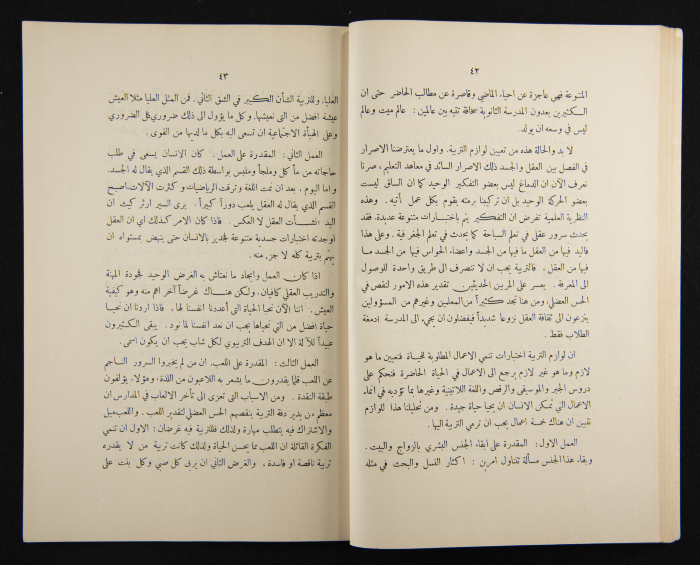 ٤٢
المتنوعة فهي عاجزة عن احياء الماضي وقاصرة عن مطالب الحاضر حتى ان
الكثيرين يعدون المدرسة الثانوية سخافة تتيه بين عالمين : عالم ميت وعالم
ليس في وسعه ان يولد .
لا بد والحالة هذه من تعيين لوازم التربية . واول ما يعترضنا الاصرار
في الفصل بين العقل والجسد ذلك الاصرار السائد في معاهد التعليم ، صرنا
نعرف الآن ان الدماغ ليس بعضو التفكير الوحيد كما ان الساق ليست
بعضو الحركة الوحيد بل ان تركيبنا برمته يقوم بكل عمل نأتيه . وهذه
النظرية العلمية تفرض ان التفكير يتم باختبارات متنوعة عديدة. فقد
يحدث سرور عقلي في تعلم السباحة كما يحدث في تعلم الجغرافية . وعلى هذا
فاليد فيها من العقل ما فيها من الجسد واعضاء الحواس فيها من الجسد ما
فيها من العقل . فالتربية يجب ان لا تنصرف الى طريق واحدة للوصول
الى المعرفة . يعسر على المربين الحديثين تقدير هذه الامور لنقص في
الحس العضلي، ومن هنا نجد كثيراً من المعلمين وغيرهم من المسؤولين
ينزعون الى ثقافة العقل نزوعا شديداً فيفضلون ان يجيء الى المدرسة ادمغة
الطلاب فقط .
ان لوازم التربية اختبارات تنمي الاعمال المطلوبة للحياة فتعيين ما هو
لازم وما هو غير لازم يرجع الى الاعمال في الحياة الحاضرة فنحكم على
دروس الجبر والموسيقى والرقص واللغة اللاتينية وغيرها بما تؤديه في انماء
الاعمال التي تمكن الانسان ان يحيا حياة جيدة . ومن تحليلنا هذا للوازم
تقيين ان هناك خمسة اعمال يجب ان ترمي التربية اليها .
العمل الاول : المقدرة على ابقاء الجنس البشري بالزواج والبيت .
وبقاء هذا الجنس مسألة تتناول امرين : اكثار النسل والبحث في مثله
٤٣
العليا. وللتربية الشأن الكبير في الشق الثاني . فمن المثل العليا مثلا العيش
عيشة افضل من التي نعيشها. وكل ما يؤول الى ذلك ضروري كل الضروري
وعلى الهيأة الاجتماعية ان تسعى اليه بكل ما لديها من القوى .
العمل الثاني : المقدرة على العمل . كان الانسان يسعى في طلب
حاجاته من مأكل وملجأ وملبس بواسطة ذلك القسم الذي يقال له الجسد.
واما اليوم ، بعد ان نمت اللغة وترقت الرياضيات وكثرت الآلات، اصبح
القسم الذي يقال له العقل يلعب دوراً كبيراً . يرى السير ارثر كيث ان
اليد انشأت العقل لا العكس . فاذا كان الامر كذلك اي ان العقل
اوجدته اختبارات جسدية متنوعة فجدير بالانسان حتى ينهض بمستواه ان
يهتم بتربية كله لا جزء منه .
اذا كان العمل وايجاد ما نعتاش به الغرض الوحيد لجودة المهنة
والتدريب العقلي كافيان، ولكن هناك غرضاً آخر اهم منه وهو كيفية
العيش . اننا الآن نحيا الحياة التي أعددنا انفسنا لها ، فاذا اردنا ان نحيا
حياة افضل من التي نحياها يجب ان نعد انفسنا لما نود . يبقى الكثيرون
عبيداً للآلة الا ان الهدف التربوي لكل شاب يجب ان يكون اسمى .
العمل الثالث : المقدرة على اللعب. ان من لم يخبروا السرور الناجم
عن اللعب قلما يقدرون ما يشعر به اللاعبون من اللذة، وهؤلاء يؤلفون
طبقة النقدة . ومن الاسباب التي تعزى الى تأخر الالعاب في المدارس ان
معظم من يدير دفة التربية ينقصهم الحس العضلي لتقدير اللعب . واللعب ميل
والاشتراك فيه يتطلب مهارة ولذلك فللتربية فيه غرضان : الاول ان تنمي
الفكرة القائلة ان اللعب مما يحسن الحياة ولذلك كانت تربية من لا يقدره
تربية ناقصة او فاسدة ، والغرض الثاني ان يربى كل صبي وكل بنت على